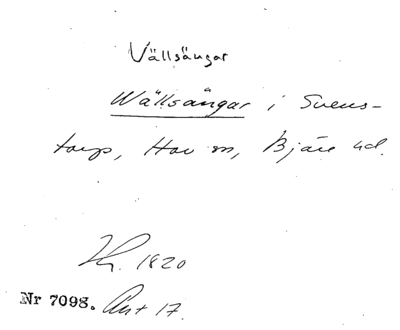 Vällsängar
Wällsängar i Svens-
torp, Hov sn, Bjäre hd.
1820
Nr 7098. Akt 17.